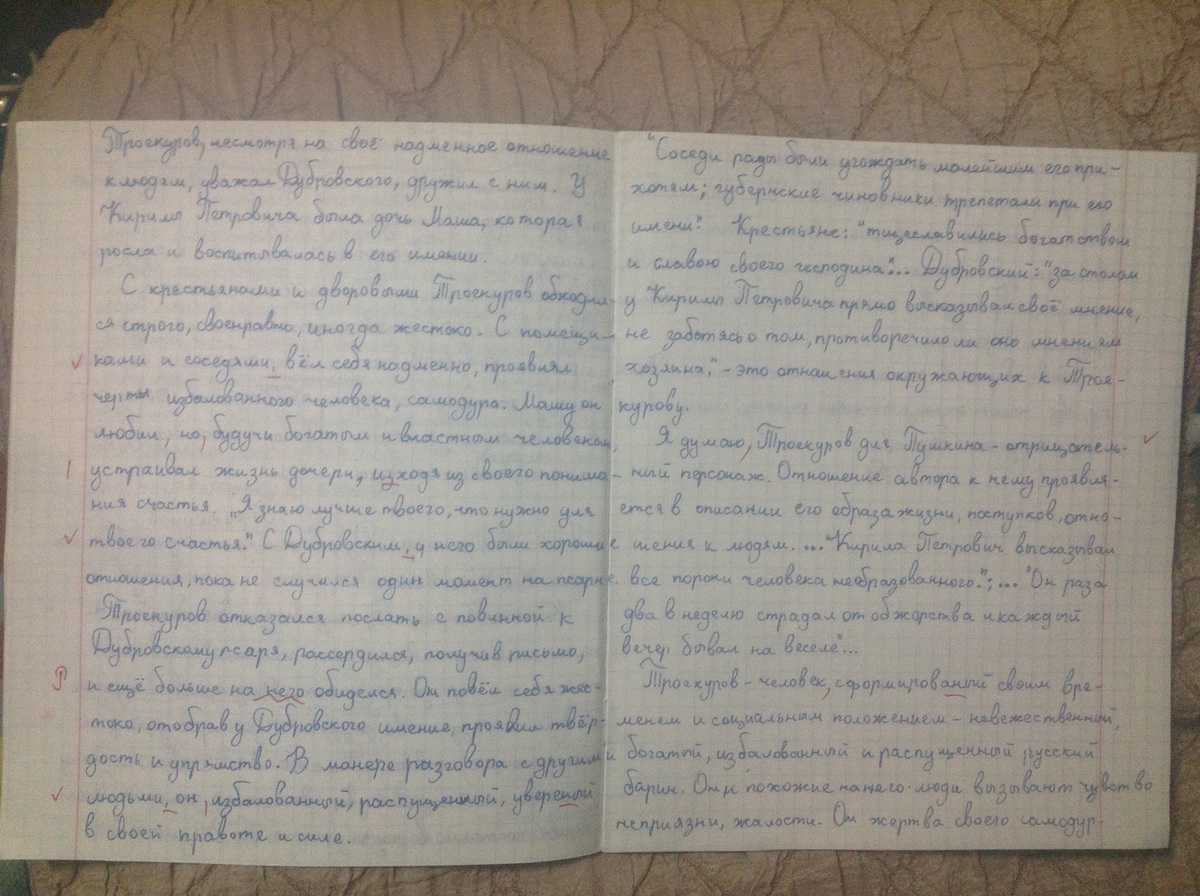 Троекуров, несмотря на своё надменное отношение
к людям, уважал Дубровского, дружил с ним. У
Кирилы Петровича была дочь Маша, которая
росла и воспитывалась в его имении.
С крестьянами и дворовыми Троекуров обходил-
ся строго, своенравно, иногда жестоко. С помещи-
ками и соседями, вёл себя надменно, проявлял
черты избалованного человека, самодура. Машу он
любил, но, будучи богатым и властным человеком,
устраивал жизнь дочери, изходя из своего понима-
ния счастья. „Я знаю лучше твоего, что нужно для
твоего счастья." С Дубровским, у него были хорошие
отношения, пока не случился один момент на псарне.
Троекуров отказался послать с повинной к
Дубровскому псаря, рассердился, получив письмо,
и ещё больше на него обиделся. Он повёл себя жес-
токо, отобрав у Дубровского имение, проявил твёр-
дость и упрямство. В манере разговора с другими
людьми, он, избалованный, распущенный, увереный
в своей правоте и силе.
"Соседи рады были угождать малейшим его при-
хотям; губернские чиновники трепетали при его
имени". Крестьяне: "тщеславились богатством
и славою своего господина"... Дубровский: "за столом
у Кирилы Петровича прямо высказывал своё мнение,
не заботясь о том, противоречило ли оно мнениям
хозяина", - это отнашения окружающих к Трое-
курову.
Я думаю, Троекуров для Пушкина - отрицатель-
ный персонаж. Отношение автора к нему проявля-
ется в описании его образа жизни, поступков, отно-
шения к людям. ... "Кирила Петрович высказывал
все пороки человека необразованного."; ... "Он раза
два в неделю страдал от обжорства и каждый
вечер бывал на веселе"...
Троекуров - человек, сформированый своим вре-
менем и социальным положением - невежественный,
богатый, избалованный и распущенный русский
барин. Он и похожие на него люди вызывают чувство
неприязни, жалости. Он жертва своего самодур-